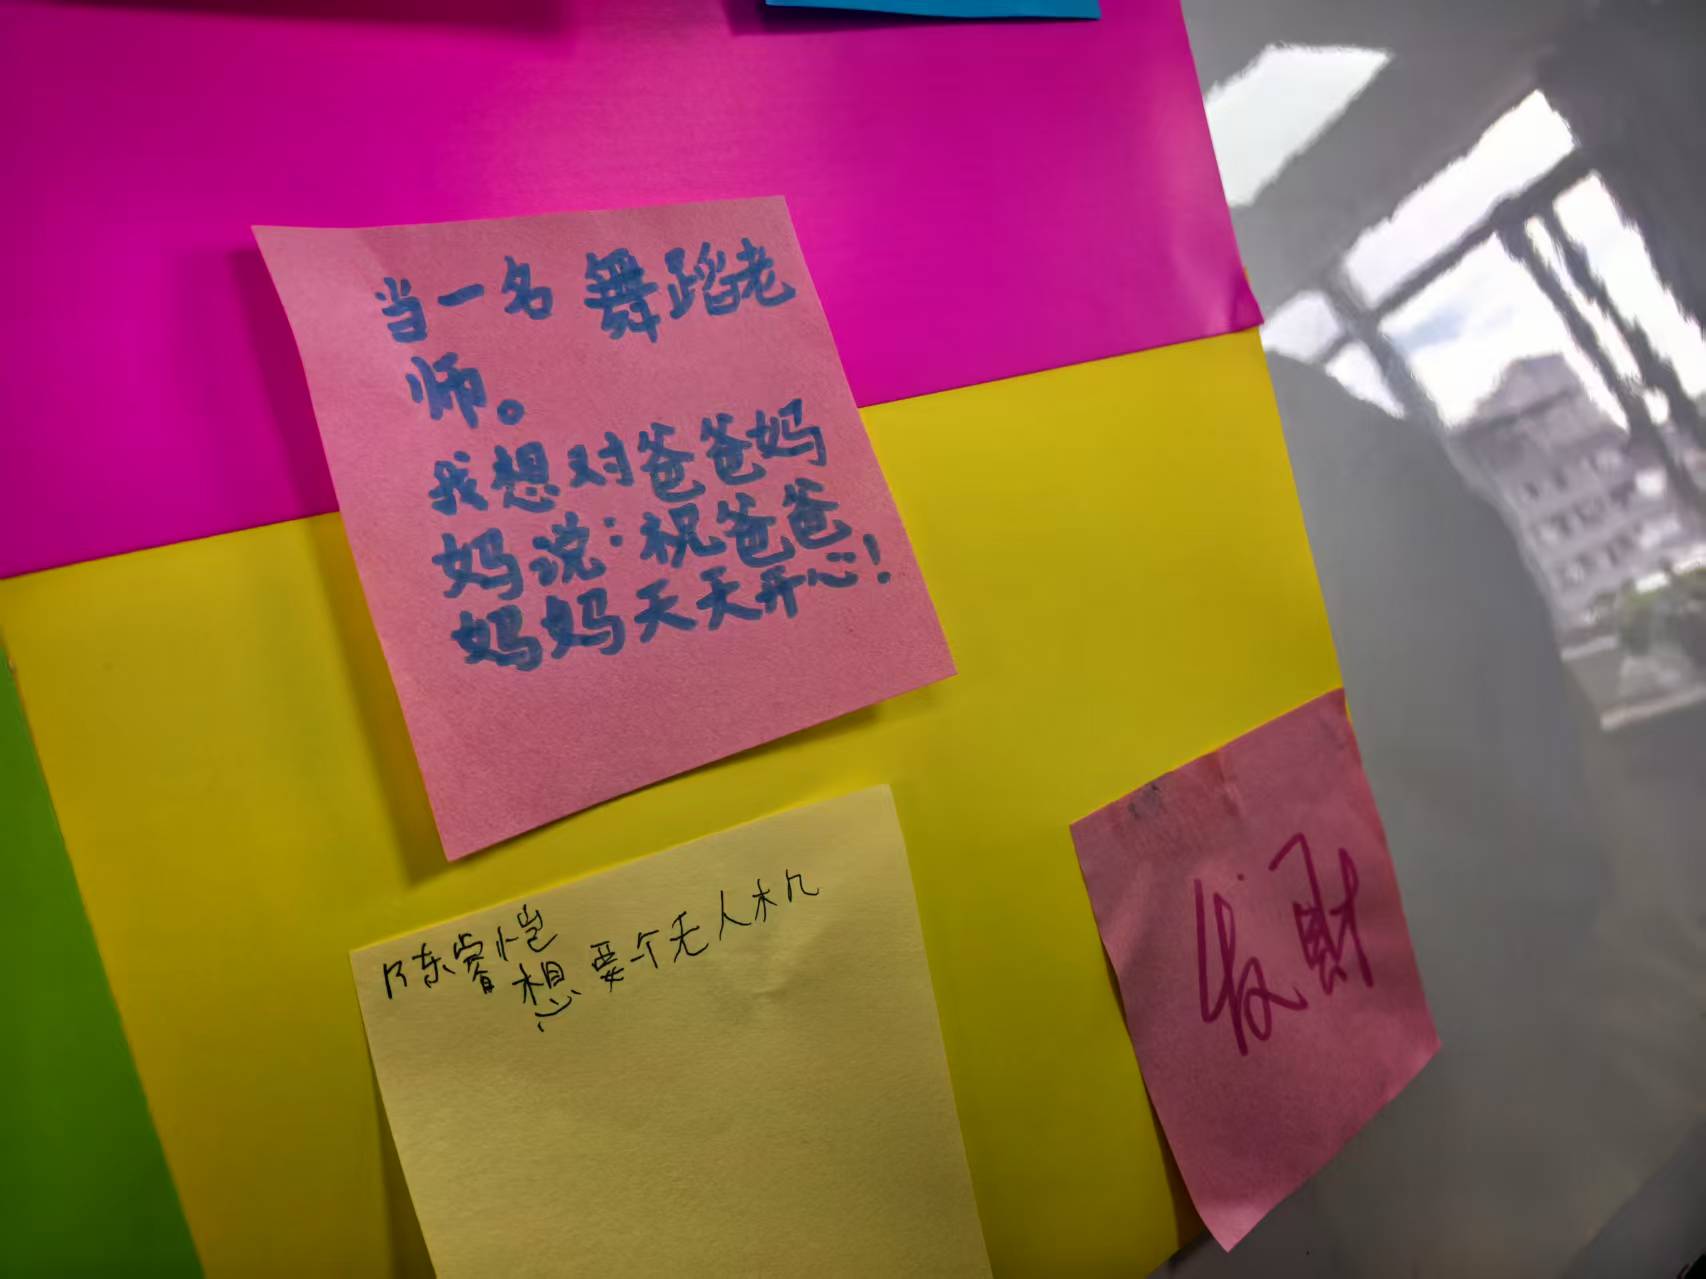 当一名舞蹈老
师。
我想对爸爸妈
妈说:祝爸爸
妈妈天天开心!
陈睿恺
想要个无人机
发财